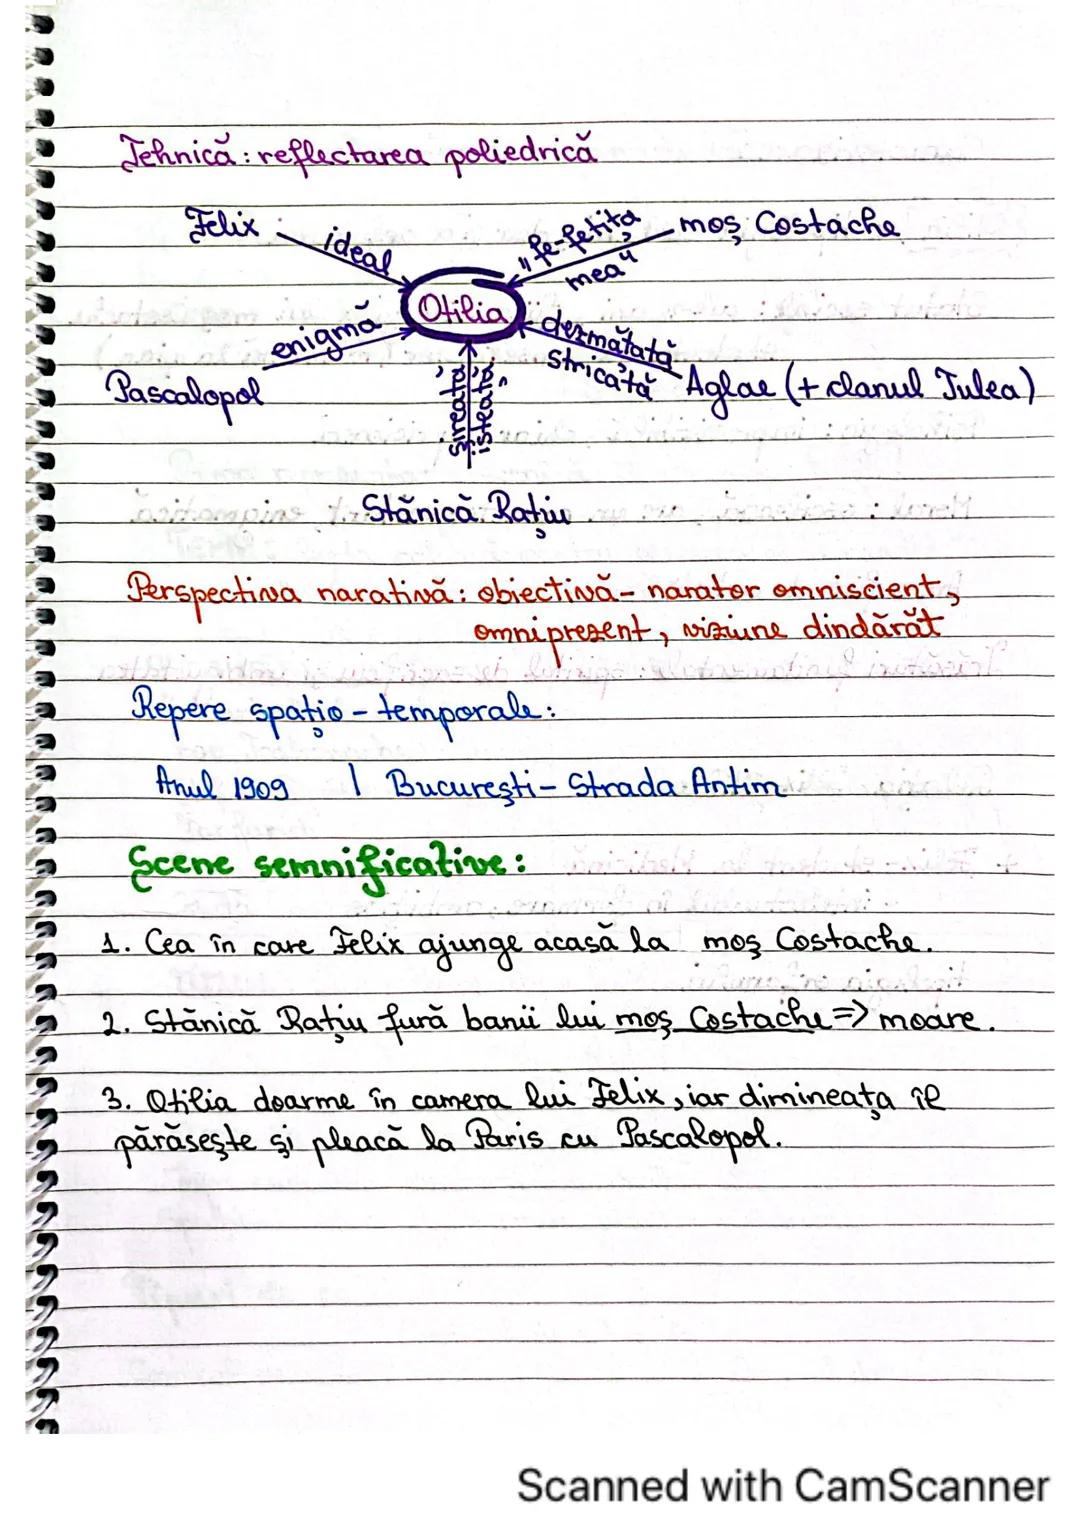 Tehnică: reflectarea poliedrică
Felix
ideal
"fe-fetița
mea"
moș Costache
Otilia
enigmă
Pascalopol
dezmățată
stricată
Aglae (+ clanul Tulea)
șireată,
isteață
Stănică Rațiu
Perspectiva narativă: obiectivă - narator omniscient,
omniprezent, viziune dindărăt
Repere spațio - temporale:
Anul 1909 | București - Strada Antim
Scene semnificative:
1. Cea în care Felix ajunge acasă la moș Costache.
2. Stănică Rațiu fură banii lui moș Costache => moare.
3. Otilia doarme în camera lui Felix, iar dimineața îl
părăsește și pleacă la Paris cu Pascalopol.
Scanned with CamScanner